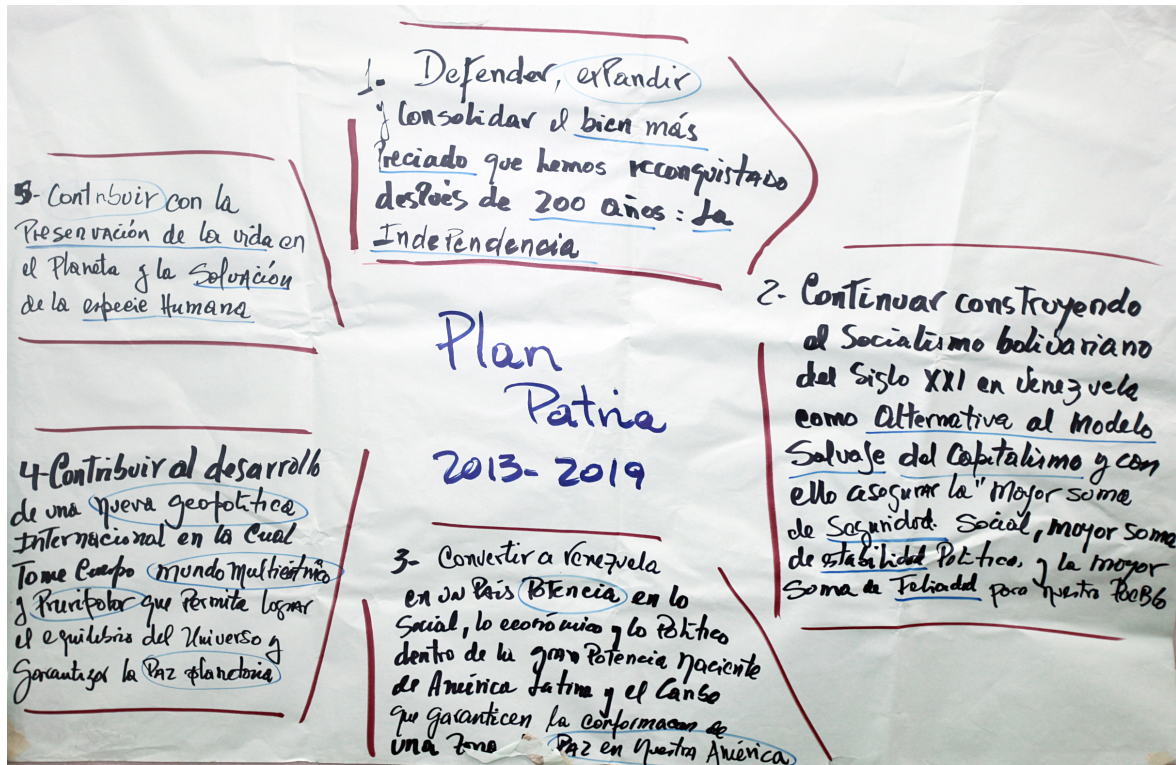 1- Defender, exPandir
y Consolidar el bien más
Preciado que hemos reconquistado
desPués de 200 años: La
IndePendencia
2- Continuar consTruyendo
el Socialismo bolivariano
del Siglo XXI en Venezuela
como alternativa al Modelo
Salvaje del Capitalismo y con
ello asegurar la "Mayor suma
de Seguridad Social, mayor soma
de estabilidad Política, y la mayor
Soma de Felicidad para nuestro PueBlo
3- Convertir a Venezuela
en un País POTencia en lo
Social, lo económico y lo Político
dentro de la gran Potencia naciente
de América Latina y el Caribe
que garanticen la conformacion de
una Zona PAZ en Nuestra América
4-Contribuir al desarrollo
de una nueva geopolítica
Internacional en la Cual
Tome Cuerpo mundo Multicéntrico
y Pluripolar que Permita Lograr
el equilibrio del Universo y
Garantizar la PAZ planetaria
5- Contribuir con la
Preservación de la vida en
el Planeta y la Salvación
de la especie Humana
Plan
Patria
2013-2019